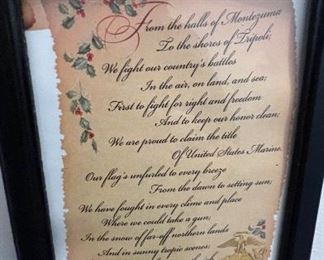 From the halls of Montezuma
To the shores of Tripoli;
We fight our country's battles
In the air, on land, and sea;
First to fight for right and freedom
And to keep our honor clean;
We are proud to claim the title
Of United States Marine.
Our flag's unfurled to every breeze
From the dawn to setting sun;
We have fought in every clime and place
Where we could take a gun;
In the snow of far-off northern lands
And in sunny tropic scenes;